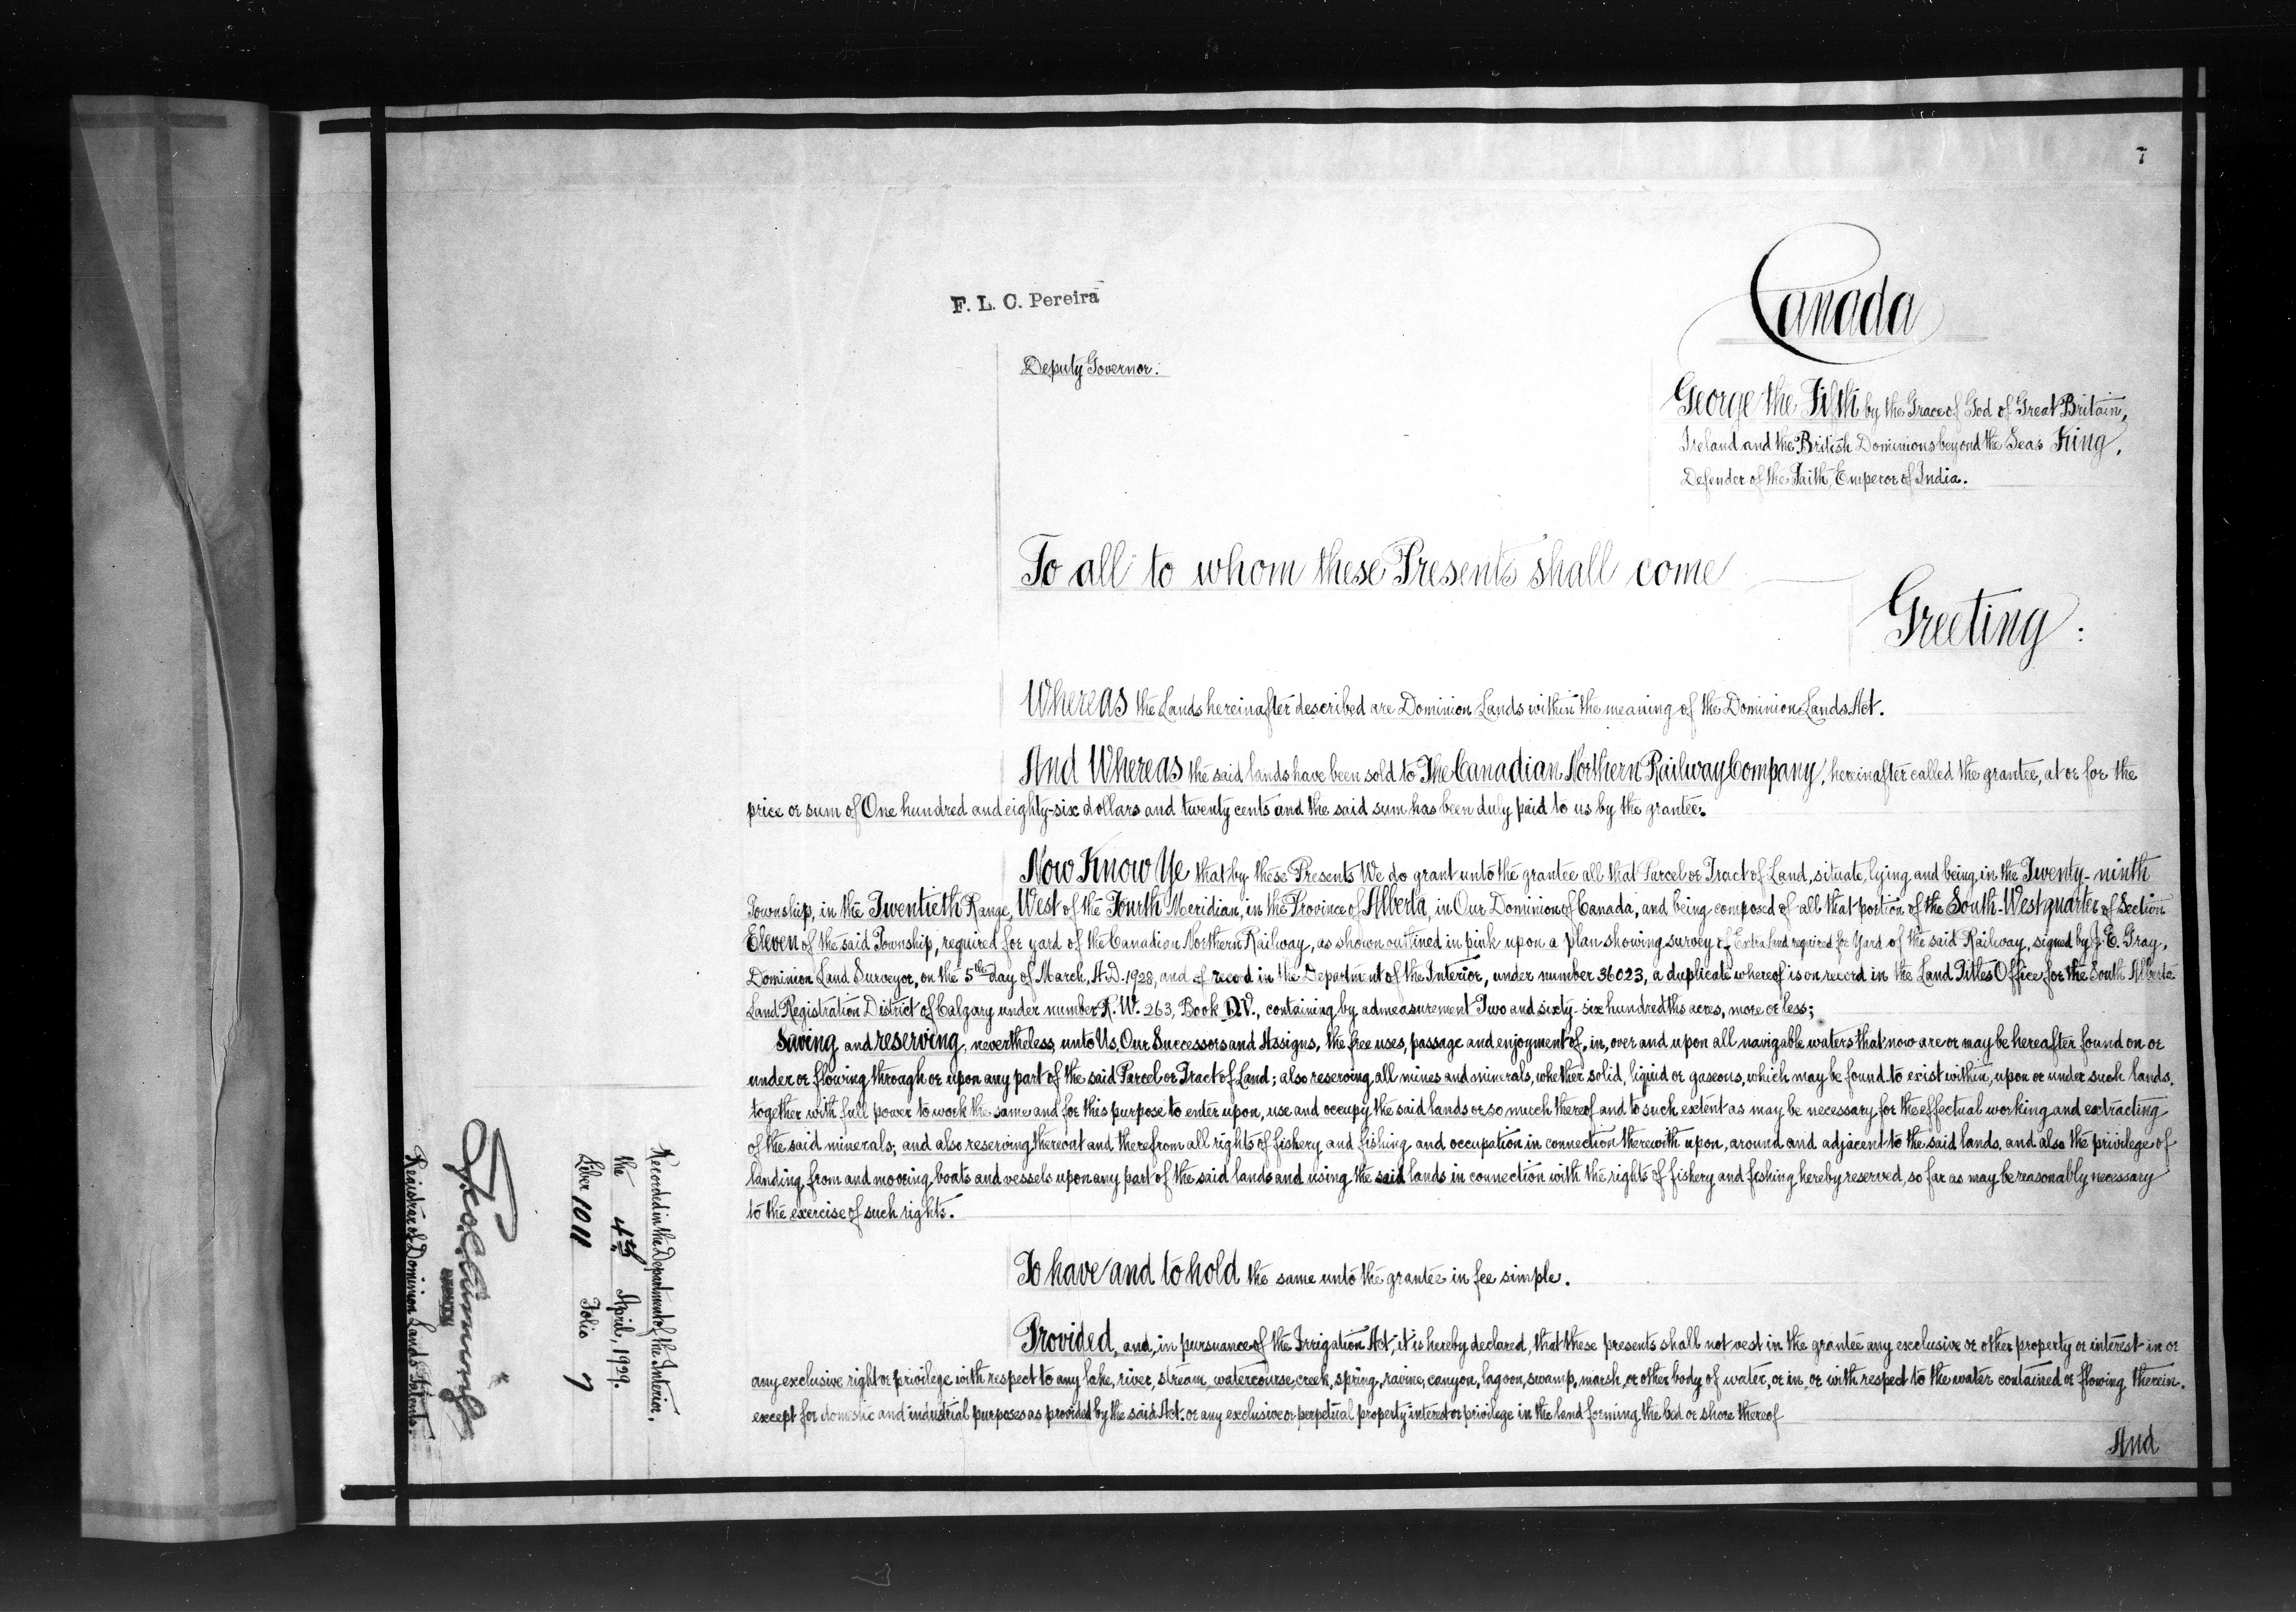 7
F. L. C. Pereira
Deputy Governor.
Canada
George the Fifth by the Grace of God of Great Britain,
Ireland and the British Dominions beyond the Seas King,
Defender of the Faith, Emperor of India.
To all to whom these Presents shall come
Greeting:
Whereas the Lands hereinafter described are Dominion Lands within the meaning of the Dominion Lands Act.
And Whereas the said lands have been sold to The Canadian Northern Railway Company, hereinafter called the grantee, at or for the
price or sum of One hundred and eighty-six dollars and twenty cents and the said sum has been duly paid to us by the grantee.
Now Know Ye that by these Presents We do grant unto the grantee all that Parcel or Tract of Land, situate, lying and being in the Twenty-ninth
Township, in the Twentieth Range, West of the Fourth Meridian, in the Province of Alberta, in Our Dominion of Canada, and being composed of all that portion of the South-West quarter of Section
Eleven of the said Township, required for yard of the Canadian Northern Railway, as shown outlined in pink upon a plan showing survey of Extra Land required for Yard of the said Railway, signed by J. E. Gray,
Dominion Land Surveyor, on the 5th day of March, A.D. 1928, and of record in the Department of the Interior, under number 36023, a duplicate whereof is on record in the Land Titles Office for the South Alberta
Land Registration District of Calgary under number R. W. 263, Book D.V., containing by admeasurement Two and sixty-six hundredths acres, more or less;
Saving and reserving, nevertheless, unto Us, Our Successors and Assigns, the free uses, passage and enjoyment of, in, over and upon all navigable waters that now are or may be hereafter found on or
under or flowing through or upon any part of the said Parcel or Tract of Land; also reserving all mines and minerals, whether solid, liquid or gaseous, which may be found to exist within, upon or under such lands,
together with full power to work the same and for this purpose to enter upon, use and occupy the said lands or so much thereof and to such extent as may be necessary for the effectual working and extracting
of the said minerals; and also reserving thereout and therefrom all rights of fishery and fishing and occupation in connection therewith upon, around and adjacent to the said lands, and also the privilege of
landing from and mooring boats and vessels upon any part of the said lands and using the said lands in connection with the rights of fishery and fishing hereby reserved, so far as may be reasonably necessary
to the exercise of such rights.
To have and to hold the same unto the grantee in fee simple.
Provided, and, in pursuance of the Irrigation Act, it is hereby declared, that these presents shall not vest in the grantee any exclusive or other property or interest in or
any exclusive right or privilege with respect to any lake, river, stream, watercourse, creek, spring, ravine, canyon, lagoon, swamp, marsh, or other body of water, or in, or with respect to the water contained or flowing therein,
except for domestic and industrial purposes as provided by the said Act, or any exclusive or perpetual property interest or privilege in the land forming the bed or shore thereof
And
Recorded in the Department of the Interior,
the 4th April, 1929.
Liber 1011 Folio 7
Registrar of Dominion Lands Patents.